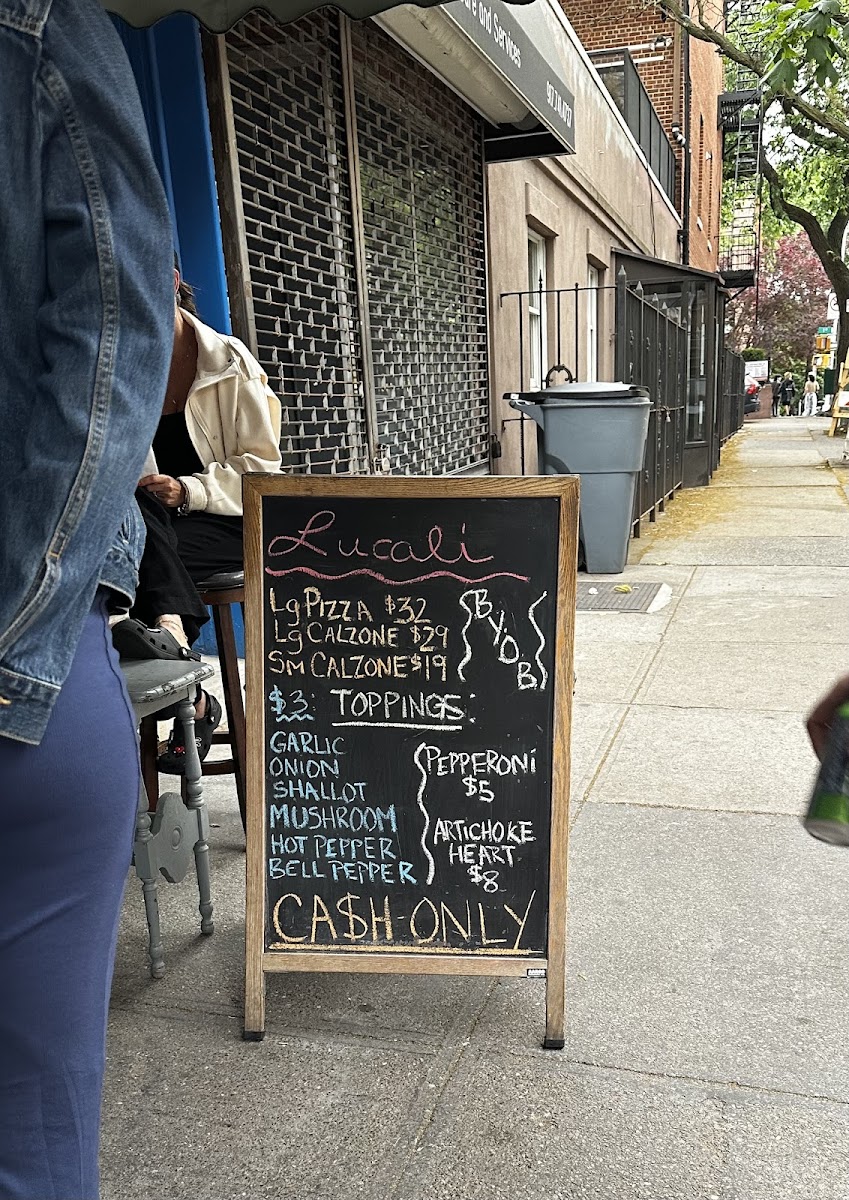 re and Services
Lucali
Lg PIZZA $32
Lg CALZONE $29
Sm CALZONE $19
BYOB
$3: TOPPINGS:
GARLIC
ONION
SHALLOT
MUSHROOM
HOT PEPPER
BELL PEPPER
PEPPERONI
$5
ARTICHOKE
HEART
$8
CA$H-ONLY